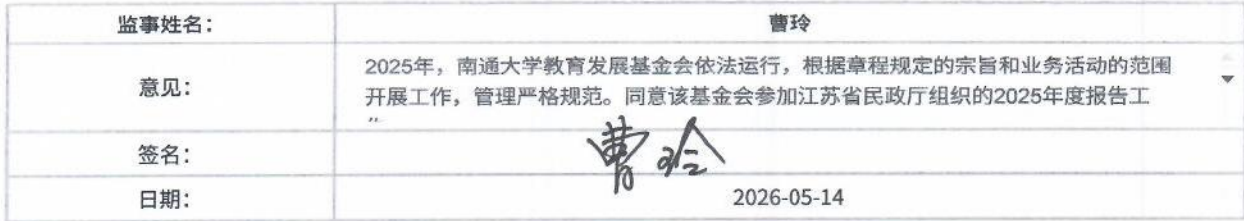 监事姓名：
曹玲
意见：
2025年，南通大学教育发展基金会依法运行，根据章程规定的宗旨和业务活动的范围
开展工作，管理严格规范。同意该基金会参加江苏省民政厅组织的2025年度报告工
签名：
曹玲
日期：
2026-05-14